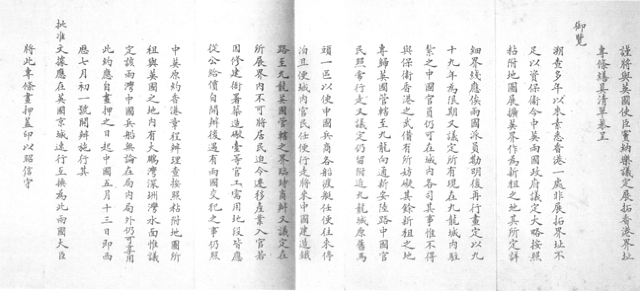 謹將與英國使臣竇納樂議定展拓香港界址
專條繕具清單恭呈
御覽
溯查多年以來素悉香港一處非展拓界址不
足以資保衛今中英兩國政府議定大略按照
粘附地圖展擴英界作為新租之地其所定詳
細界綫應俟兩國派員勘明後再行畫定以九
十九年為限期又議定所有現在九龍城內駐
紮之中國官員仍可在城內各司其事惟不得
與保衛香港之武備有所妨礙其餘新租之地
專歸英國管轄至九龍向通新安陸路中國官
民照常行走又議定仍留附近九龍城原舊馬
頭一區以便中國兵商各船渡艇任便往來停
泊且便城內官民任便行走將來中國建造鐵
路至九龍英國管轄之界臨時商辦又議定在
所展界內不可將居民迫令遷移產業入官若
因修建衙署築造礮臺等官工需用地段皆應
從公給價自開辦後遇有兩國交犯之事仍照
中英原約香港章程辦理查按照粘附地圖所
租與英國之地內有大鵬灣深洲灣水面惟議
定該兩灣中國兵船無論在局內局外仍可享用
此約應自畫押之日起中國五月十三日即西
歷七月初一號開辦施行其
批准文據應在英國京城速行互換為此兩國大臣
將此專條畫押蓋印以昭信守